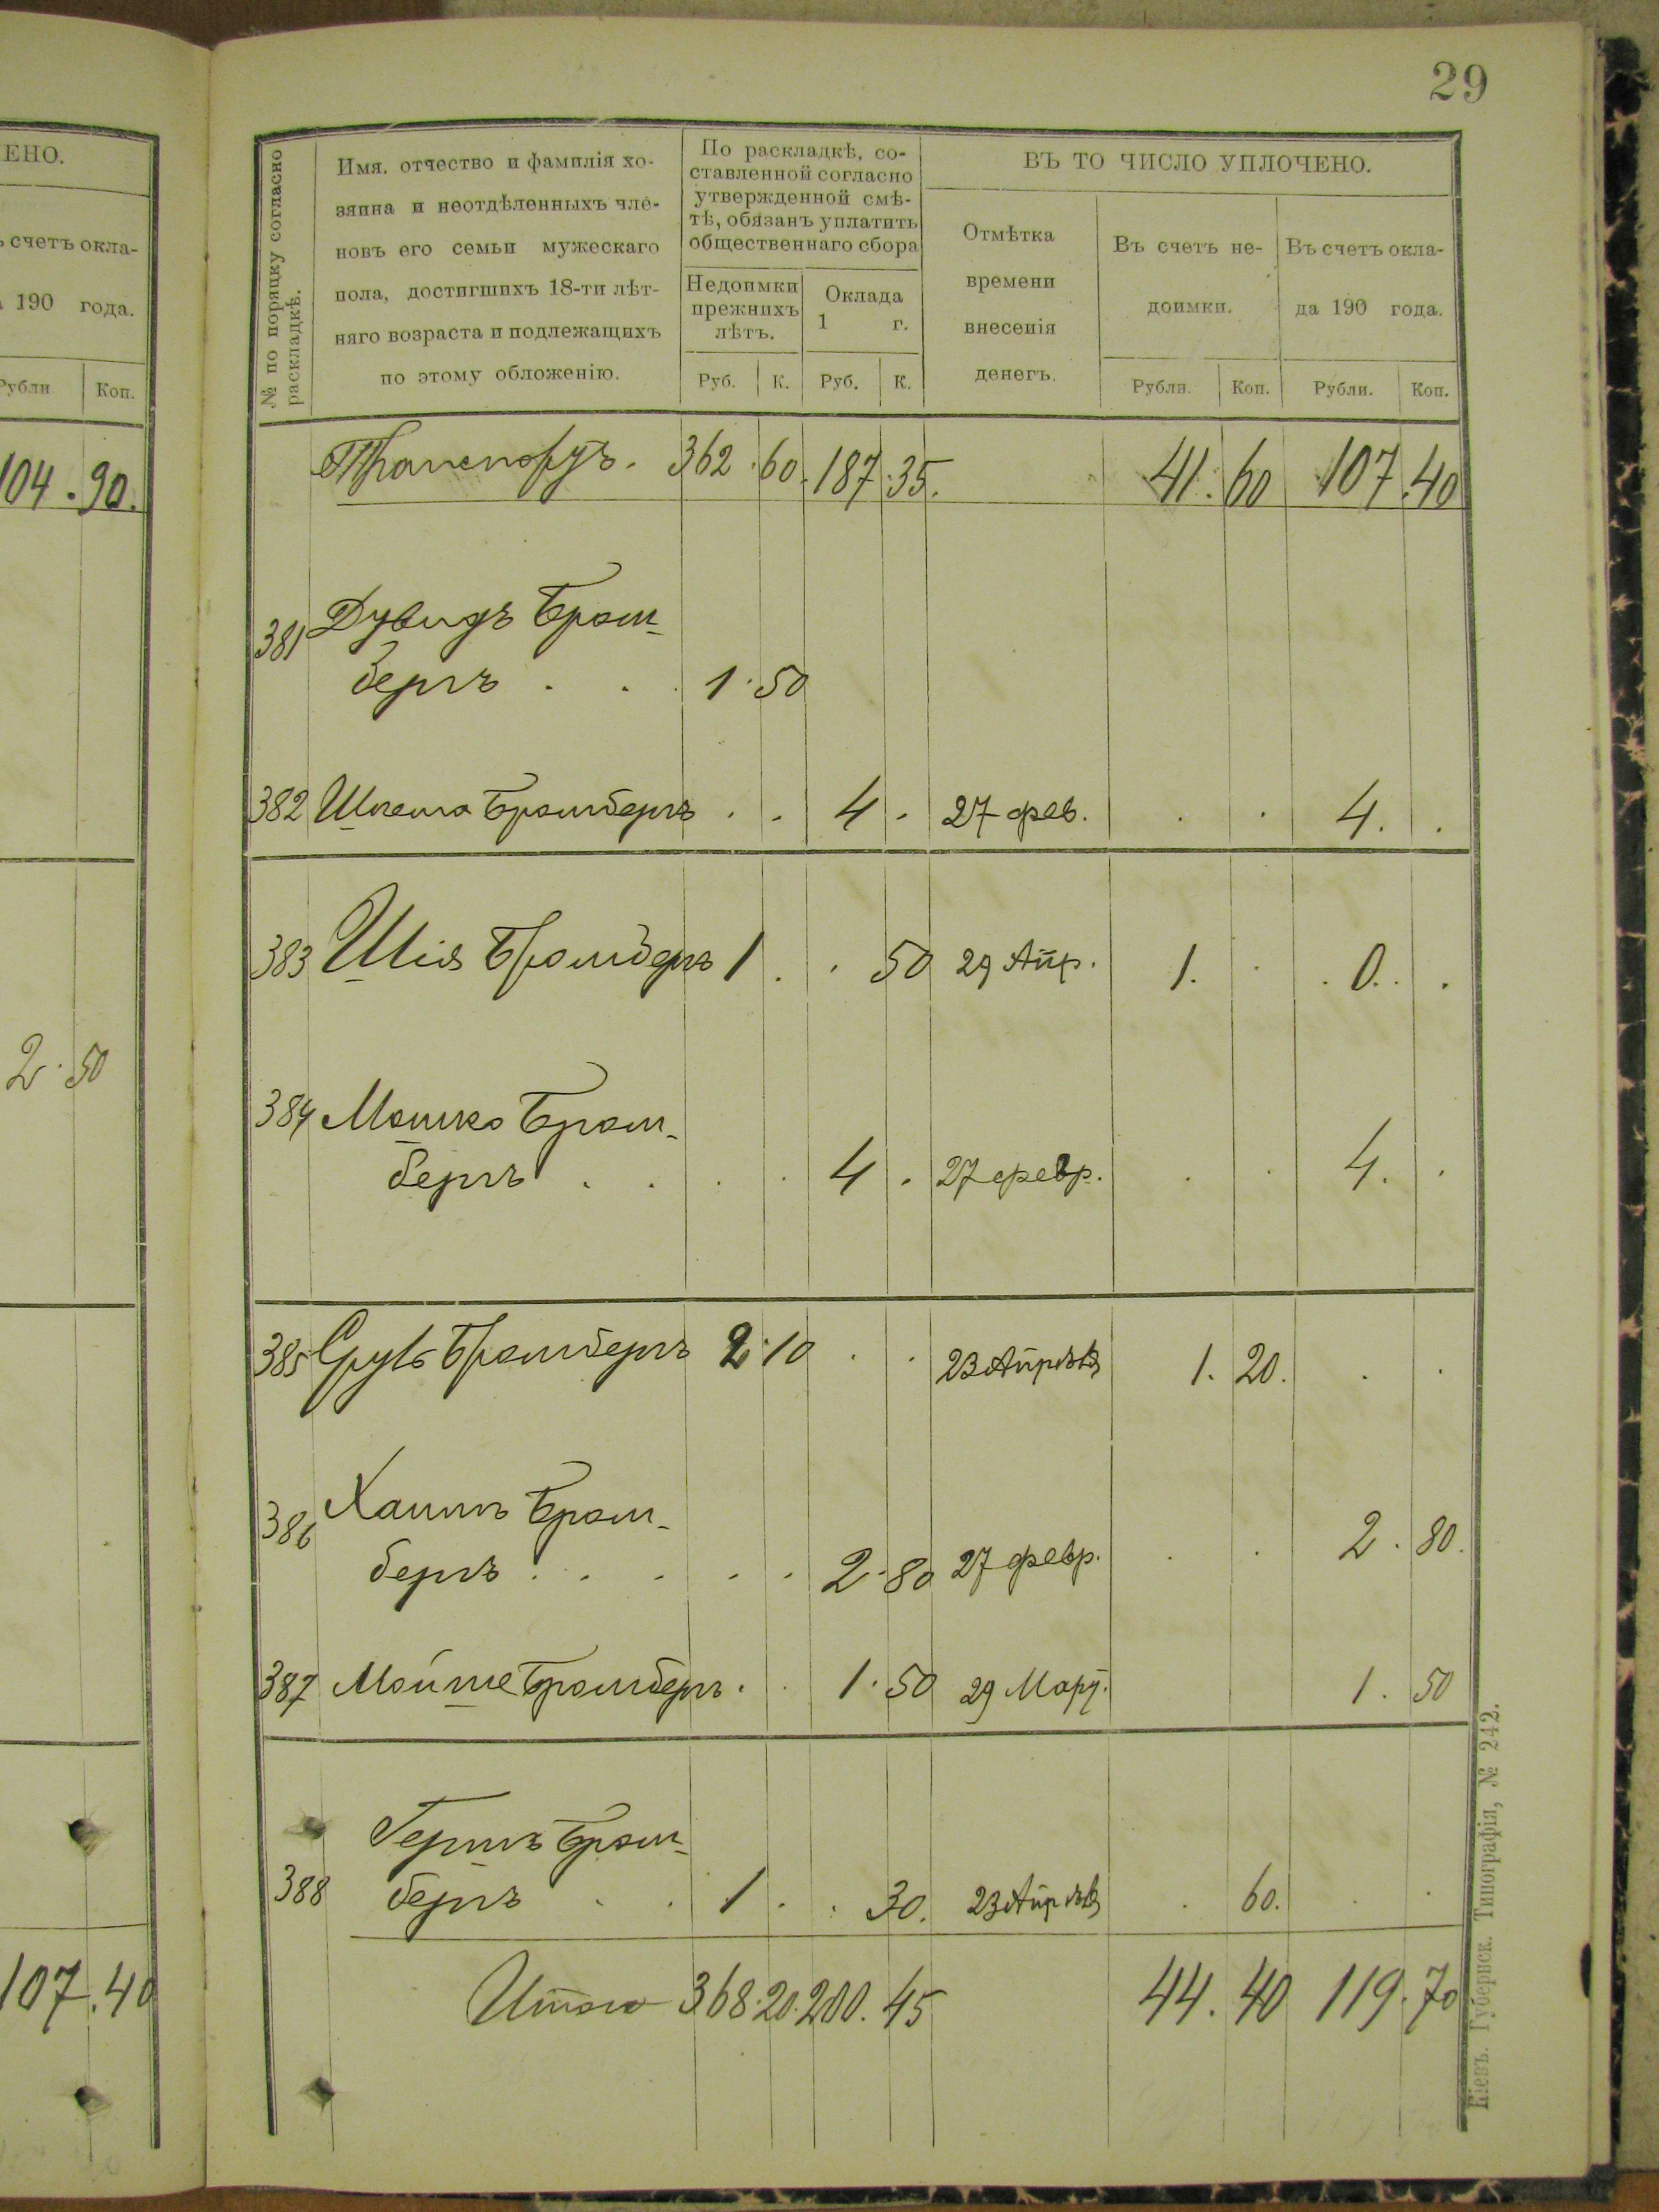 29
ЕНО.
ъ счетъ окла-
а 190 года.
Рубли Коп.
104.90.
2.50
107.40
№ по поряцку согласно
раскладкѣ.
Имя, отчество и фамилія хо-
зяина и неотдѣленныхъ чле-
новъ его семьи мужескаго
пола, достигшихъ 18-ти лѣт-
няго возраста и подлежащихъ
по этому обложенію.
По раскладкѣ, со-
ставленной согласно
утвержденной смѣ-
тѣ, обязанъ уплатить
общественнаго сбора
Недоимки
прежнихъ
лѣтъ.
Оклада
1 г.
Руб. К. Руб. К.
ВЪ ТО ЧИСЛО УПЛОЧЕНО.
Отмѣтка
времени
внесенія
денегъ.
Въ счетъ не-
доимки.
Въ счетъ окла-
да 190 года.
Рубли. Коп. Рубли. Коп.
Транспортъ. 362.60. 187.35. 41.60 107.40
381 Дувидъ Бром-
бергъ . . . 1.50
382 Бромбергъ . . 4 . 27 фев. . . 4. .
383 Шія Бромбергъ 1 . . 50 29 Апр. 1. . . 0. . .
384 Мошко Бром-
бергъ . . . . 4 . 27 февр. . . 4. .
385 Сруль Бромбергъ 2.10 . . 23 Апрѣля 1. 20. . .
386 Хаимъ Бром-
бергъ . . . . . 2.80 27 февр. . . 2.80.
387 Мойше Бромбергъ . . 1.50 29 Март. 1.50
388 Гершъ Бром-
бергъ . . 1 . . 30. 23 Апрѣля . 60. . .
Итого 368.20.200.45 44.40 119.70
Кіевъ. Губернск. Типографія, № 242.